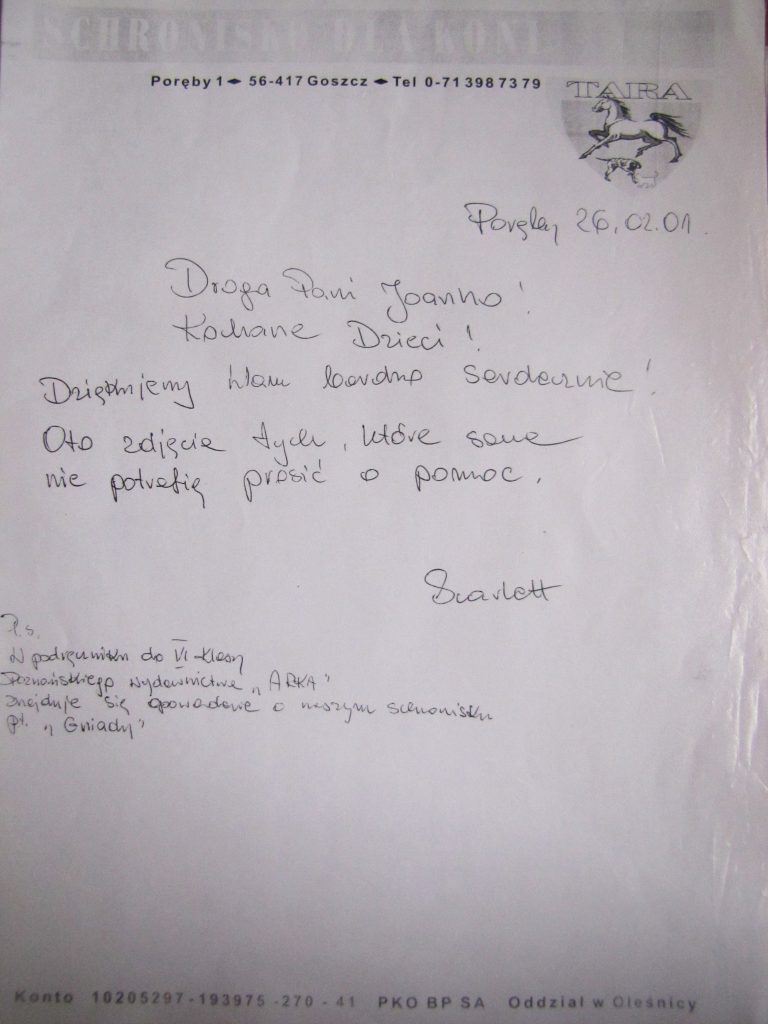 SCHRONISKO DLA KONI
Poręby 1 ◆ 56-417 Goszcz ◆ Tel 0-71 398 73 79
TARA
Poręby 26.02.01.
Droga Pani Joanno!
Kochane Dzieci!
Dziękujemy Wam bardzo serdecznie!
Oto zdjęcia tych, które same
nie potrafią prosić o pomoc.
Scarlett
P.s.
W podręczniku do VI-klasy
Poznańskiego wydawnictwa „ARKA"
znajduje się opowiadanie o naszym schronisku
pt. „Gniady"
Konto 10205297-193975-270-41 PKO BP SA Oddział w Oleśnicy